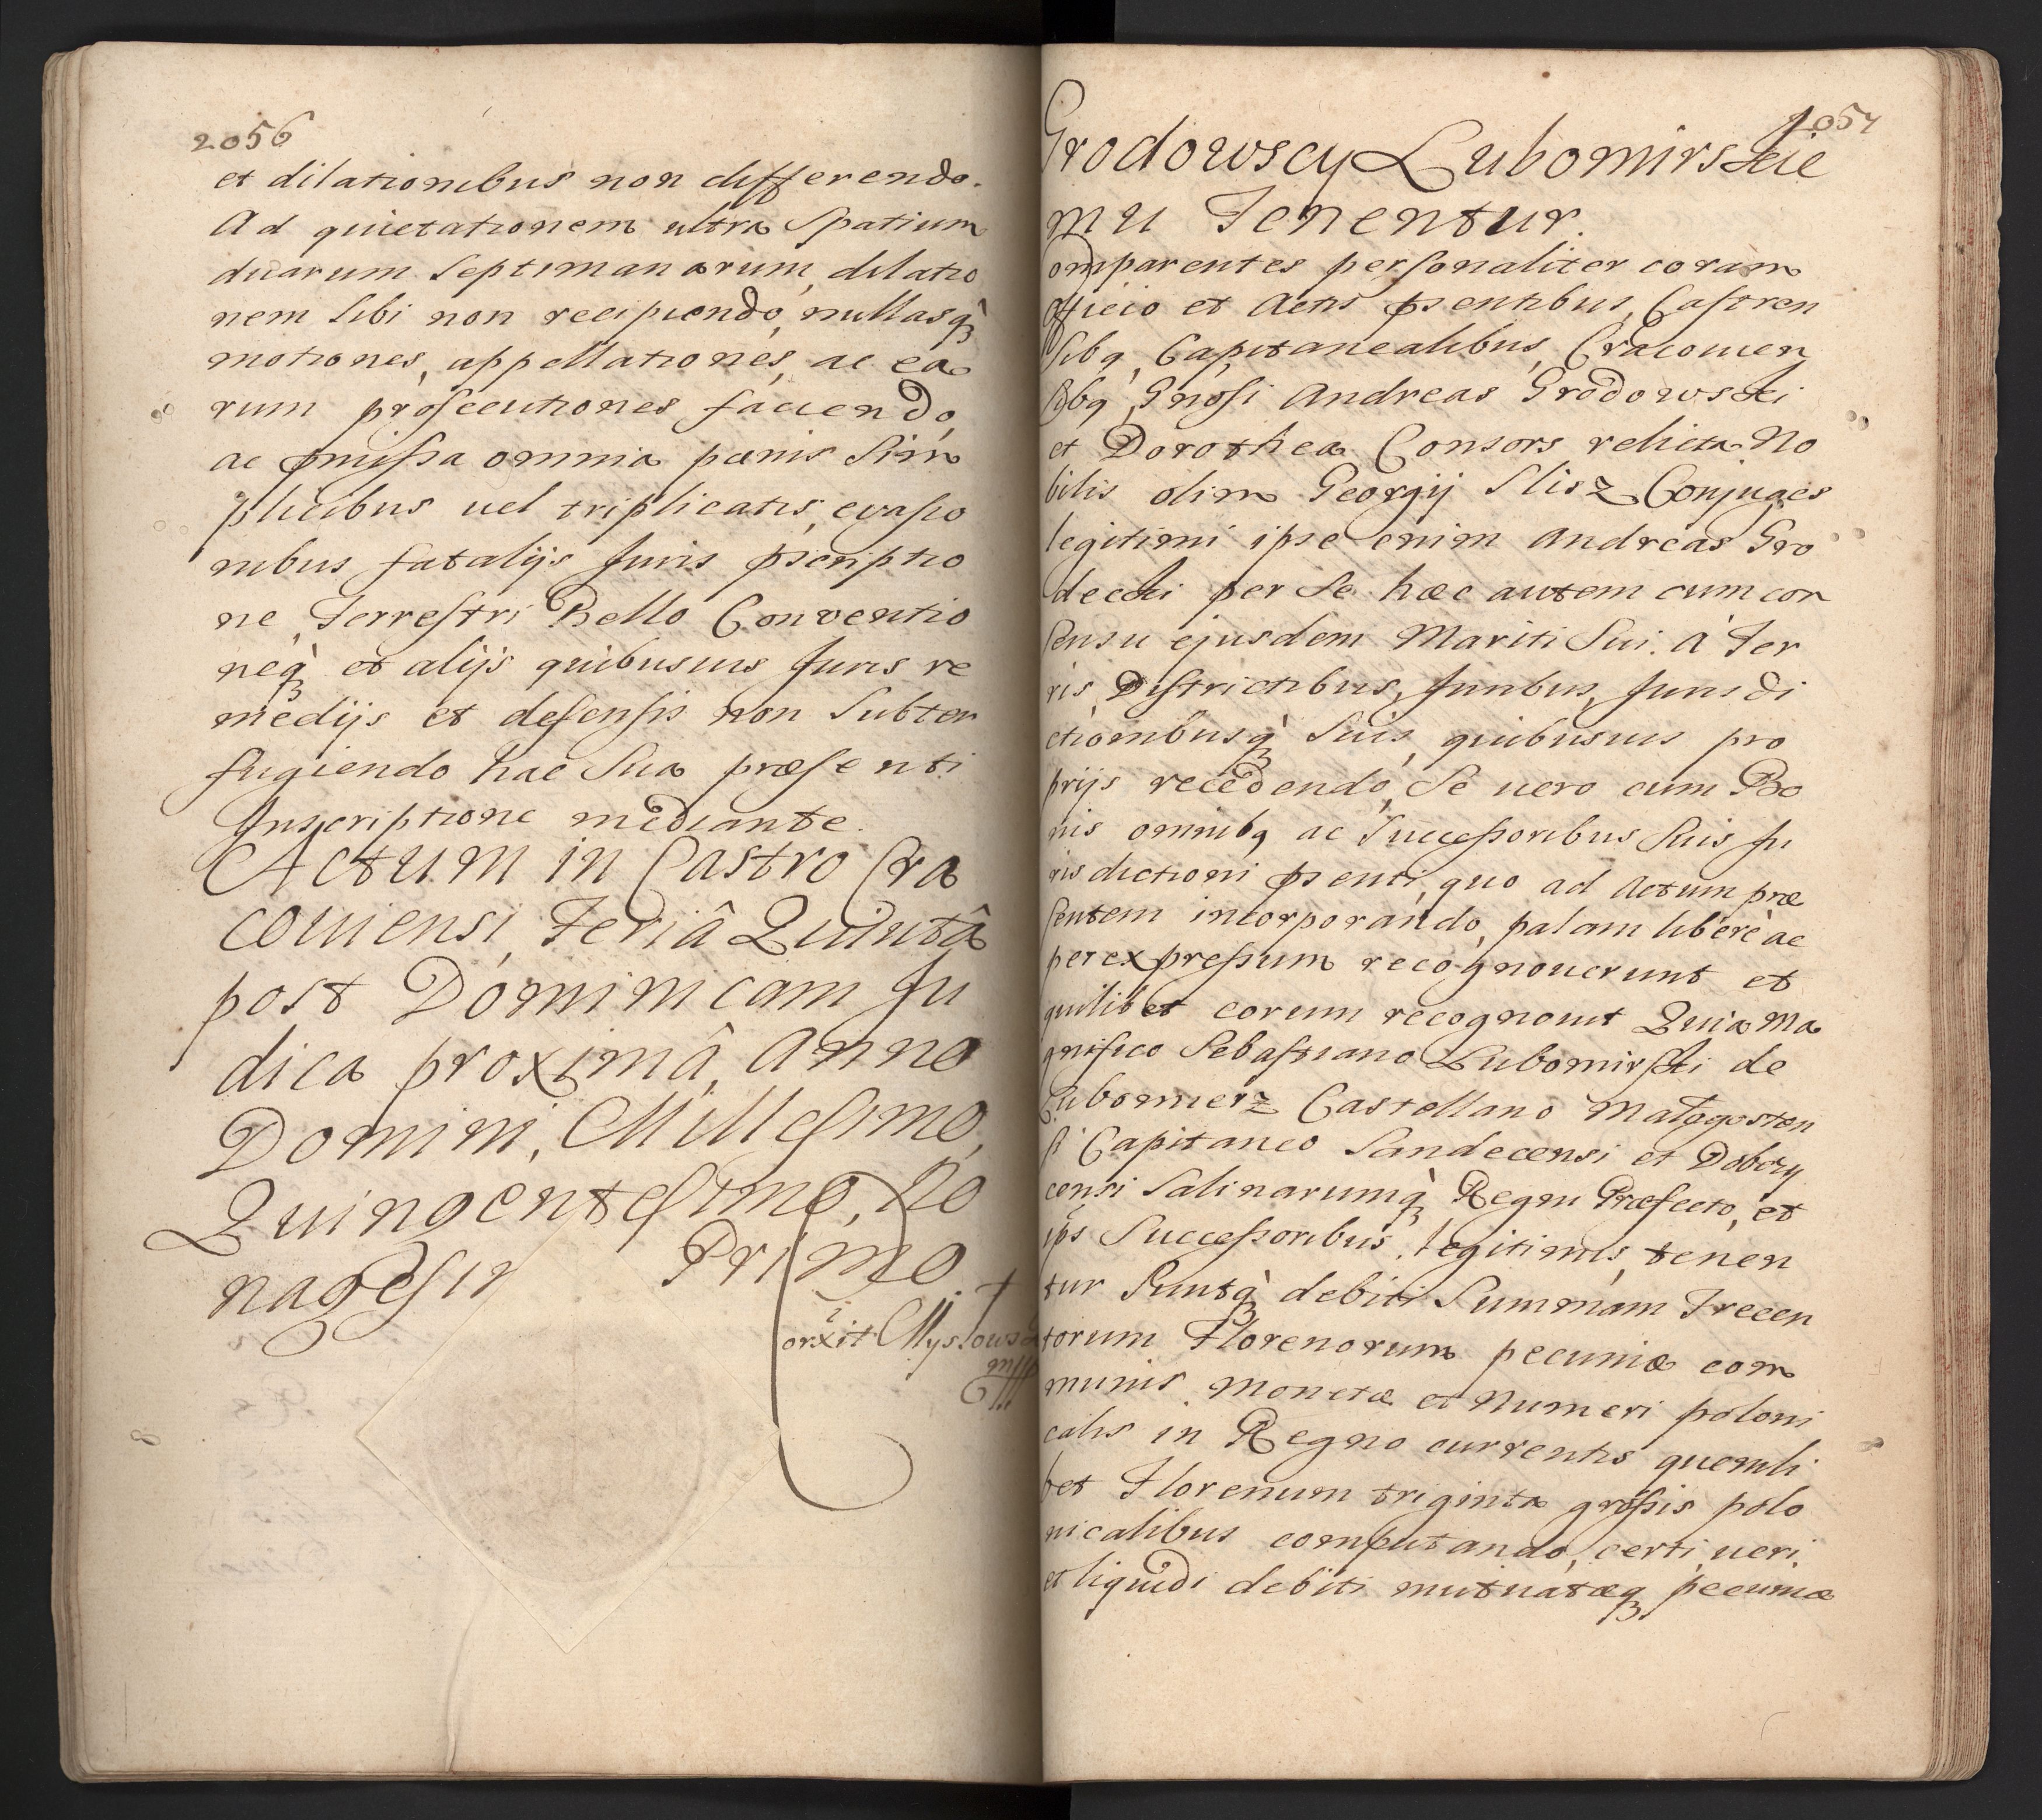 2056
et dilationibus non differendo.
Ad quietationem ultra Spatium
duarum Septimanarum, dilatio
nem Sibi non recipiendo, nullasq̀
motiones, appellationes, ac ea
rum prosecutiones faciendo,
ac pmissa omnia pænis Sim
plicibus uel triplicatis, evasio
nibus fatalijs Juris pscriptio
ne, Terrestri Bello Conventio
neq̀ et alijs quibusuis Juris re
medijs et defensis non Subter
fugiendo hac Sua præsenti
Inscriptione mediante.
Actum in Castro Cra
couiensi, Feriâ Quintâ
post Dominicam Ju
dica proximâ, Anno
Domini, Millesimo,
Quingentesimo, No
nagesi Primo
Myslowsk
2057
Grodowscy Lubomirskie
mu Tenentur.
omparentes personaliter coram
Officio et Actis psentibus, Castren
sibq, Capitanealibus, Cracouien
sibq, Gnosi Andreas Grodowski
et Dorothea Consors relicta No
bilis olim Georgij Slisz Conjuges
legitimi ipse enim Andreas Gro
decki per Se hæc autem cum con
sensu ejusdem Mariti Sui. à Ter
ris, Districtibus, Juribus, Jurisdi
ctionibusq̀ Suis, quibusuis pro
prijs recedendo, Se uero cum Bo
nis omnibq ac Successoribus Suis Ju
risdictioni psenti, quo ad Actum præ
sentem incorporando, palam libere ac
per expressum recognouerunt et
quilibet eorum recognouit Quia Ma
gnifico Sebastiano Lubomirski de
Lubomierz Castellano Małogosten
si Capitaneo Sandecensi et Dobczy
censi Salinarumq̀ Regni Præfecto, et
ips Successoribus legitimis, tenen
tur Suntq̀ debiti Summam Trecen
torum Florenorum pecuniæ com
munis Monetæ et Numeri poloni
calis in Regno currentis quemli
bet Florenum triginta grossis polo
nicalibus computando, certi, ueri,
et liquidi debiti mutuatæq pecuniæ